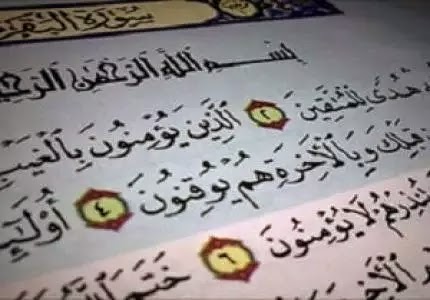 سُورَةُ الْبَقَرَة
بِسْمِ اللَّهِ الرَّحْمَٰنِ الرَّحِي
هُدًى لِّلْمُتَّقِينَ ٢ الَّذِينَ يُؤْمِنُونَ بِالْغَيْبِ
قَبْلِكَ وَبِالْآخِرَةِ هُمْ يُوقِنُونَ ٤ أُولَٰئِ
نذِرْهُمْ لَا يُؤْمِنُونَ ٦ خَتَمَ اللَّهُ